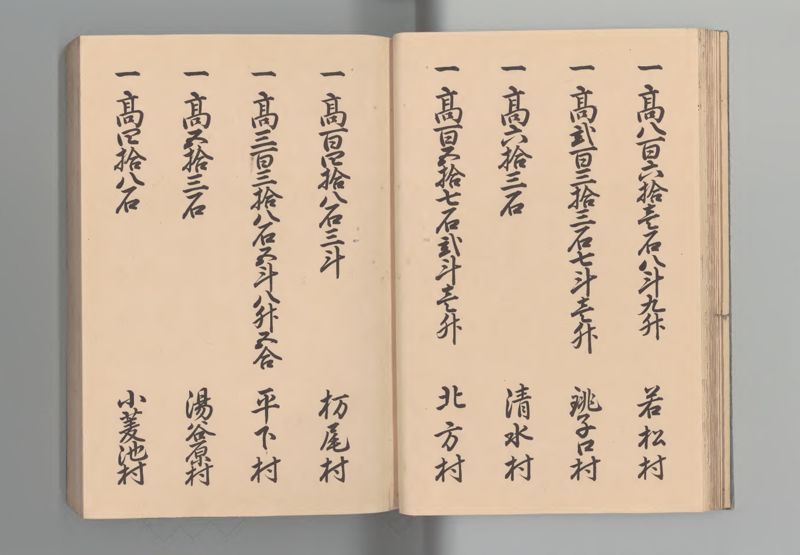 一 髙八百六拾壱石八斗九升 若松村
一 髙弐百三拾三石七斗壱升 銚子口村
一 髙六拾三石 清水村
一 髙百五拾七石弐斗壱升 北方村
一 髙百四拾八石三斗 杤尾村
一 髙三百三拾八石五斗八升五合 平下村
一 髙五拾三石 湯谷原村
一 髙四拾八石 小菱池村